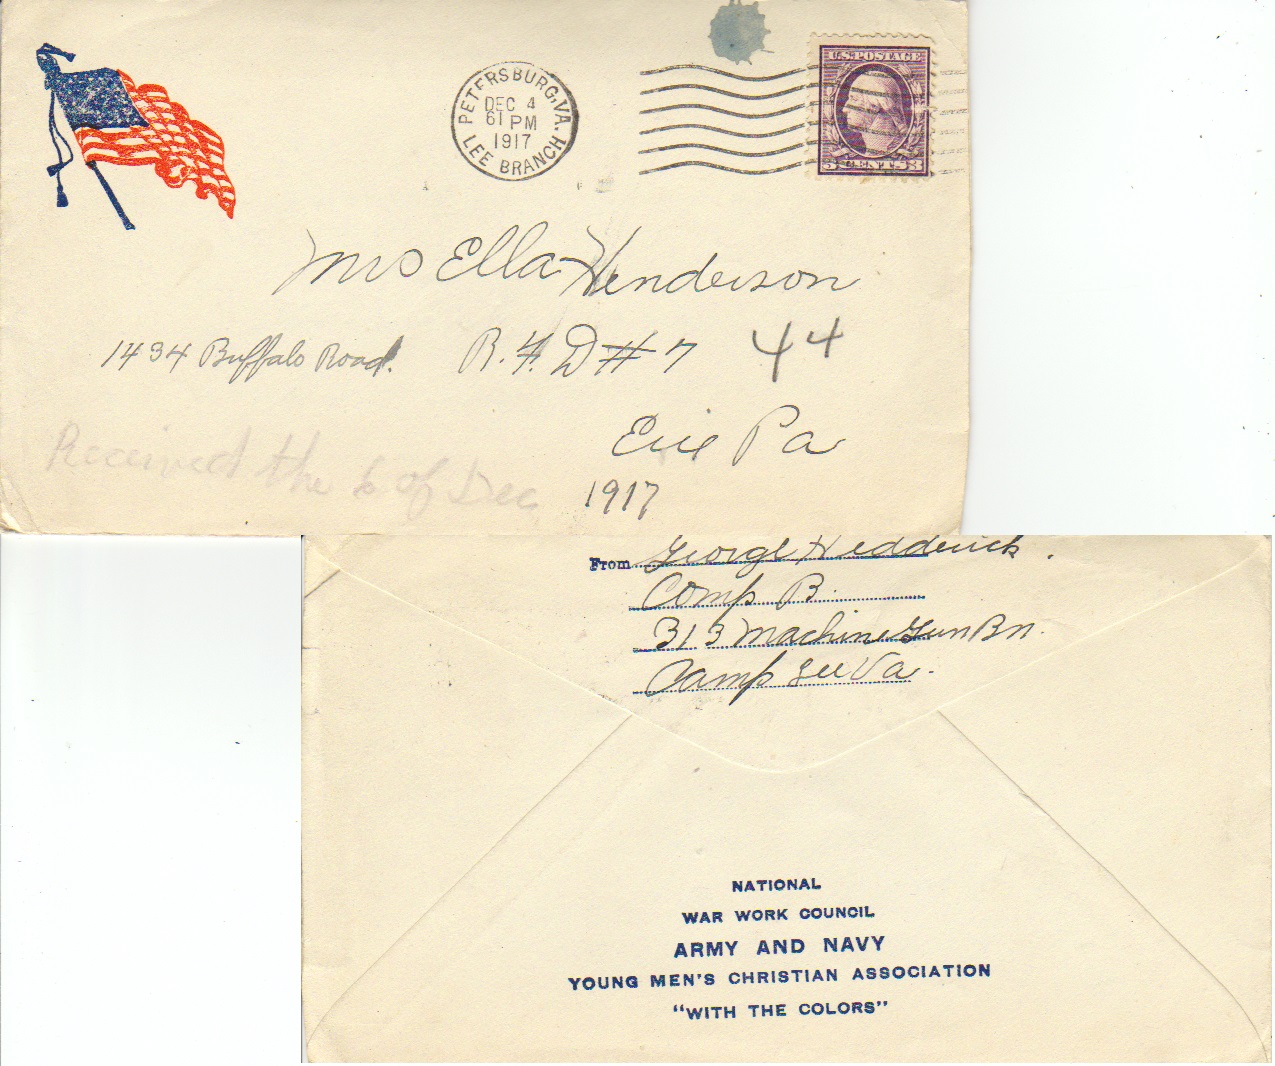 PETERSBURG, VA.
DEC 4
61 PM
1917
LEE BRANCH
U.S. POSTAGE
3 CENTS 3
Mrs Ella Henderson
1434 Buffalo Road. R.F.D # 7
44
Erie Pa
Received the 6 of Dec
1917
From George Hedderick.
Comp B.
313 Machine Gun Bn.
Camp Lee Va.
NATIONAL
WAR WORK COUNCIL
ARMY AND NAVY
YOUNG MEN'S CHRISTIAN ASSOCIATION
"WITH THE COLORS"